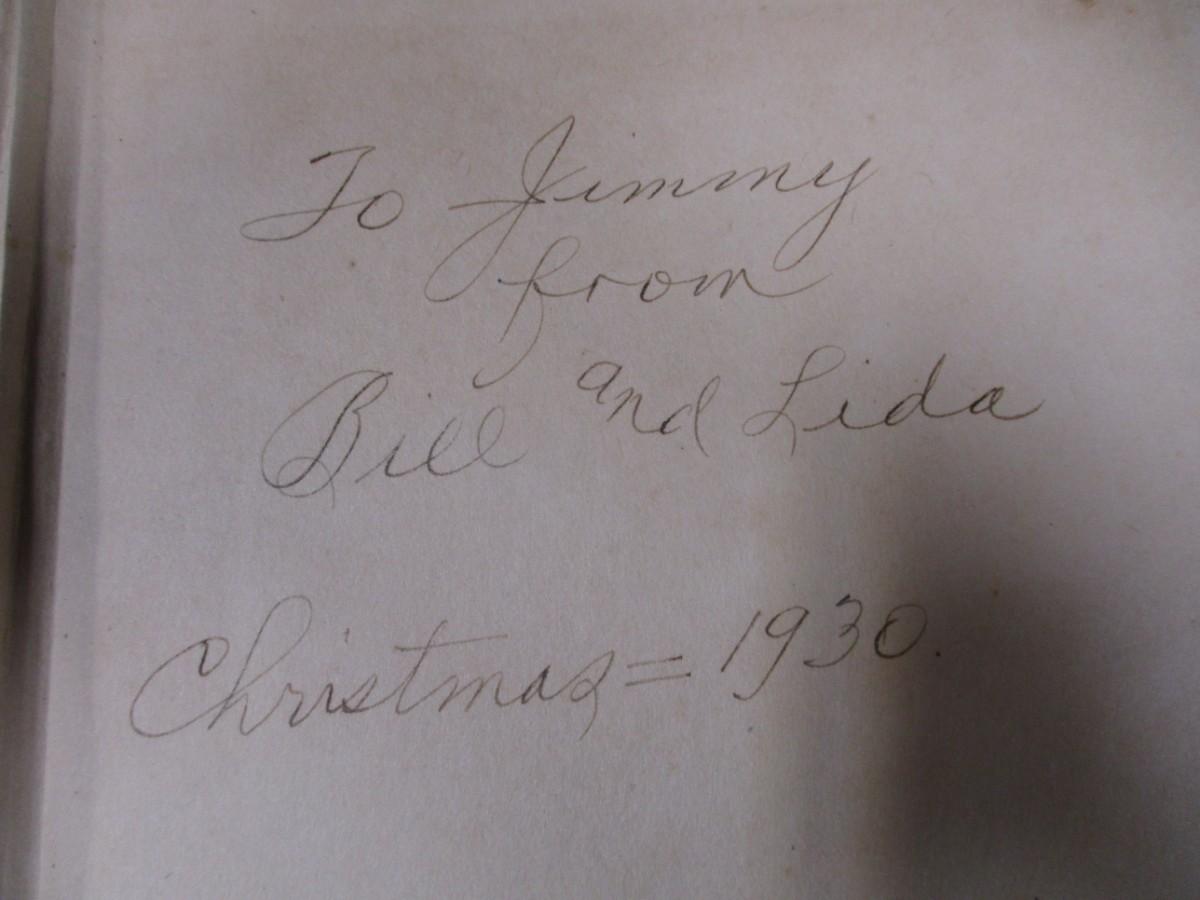 To Jimmy
from
Bill and Lida
Christmas = 1930.